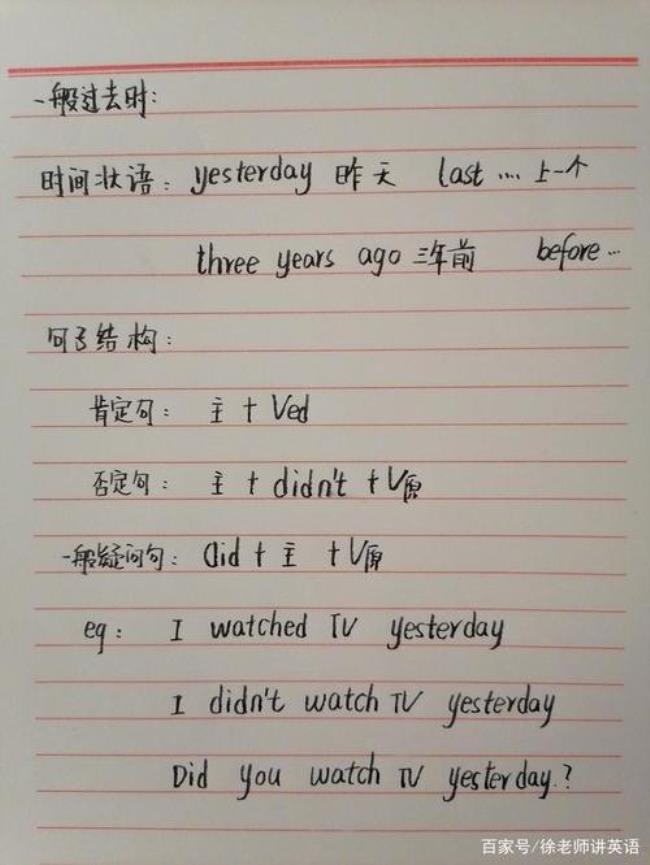 一般过去时：
时间状语：yesterday 昨天 last .... 上一个
three years ago 三年前 before ...
句子结构：
肯定句：主 + Ved
否定句：主 + didn't + V原
一般疑问句：Did + 主 + V原
eg： I watched TV yesterday
I didn't watch TV yesterday
Did you watch TV yesterday.?
百家号/徐老师讲英语